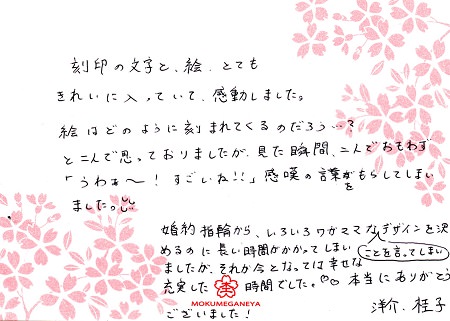 刻印の文字と、絵、とても
きれいに入っていて、感動しました。
絵はどのように刻まれてくるのだろう…?
と二人で思っておりましたが、見た瞬間、二人でおもわず
「うわぁ〜!すごいね!!」感嘆の言葉をもらしてしまい
ました。
婚約指輪から、いろいろワガママなデザインを決
ことを言ってしまい
めるのに長い時間がかかってしまい
ましたが、それが今となっては幸せな
充実した時間でした。♡♡本当にありがとう
ございました!
MOKUMEGANEYA
洋介、桂子